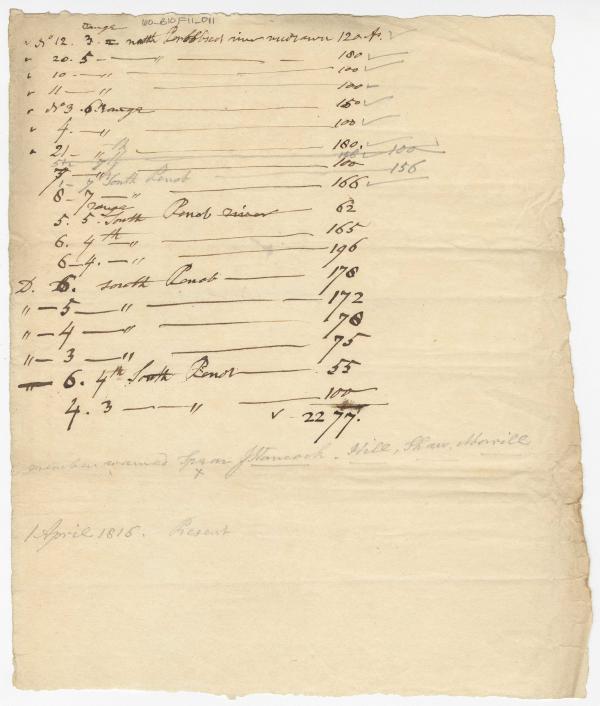 range 160_B10F11_011
✓ No 12. 3. north Penobscot river 120 A. ✓
✓ 20. 5 — " — 180 ✓
✓ 10 — " — 100 ✓
✓ 11 — " — 100 ✓
✓ No 3. 6. Range — 150 ✓
✓ 4. — " — 100 ✓
✓ 21 — " — 180. ✓ 100
7 — " — 100
7 South Penob — 156
8 — 7 — " — 166 ✓
range
5. 5. South Penob river 62
6. 4th — 165
6 — 4. — " — 196
D. 6. south Penob — 178
" — 5 — " — 172
" — 4 — " — 78
" — 3 — " — 75
— 6. 4th South Penob — 55
4. 3 — " — 100
✓ — 2277.
J Hancock. Hill, Shaw, Morrill
x
1 April 1816. Present